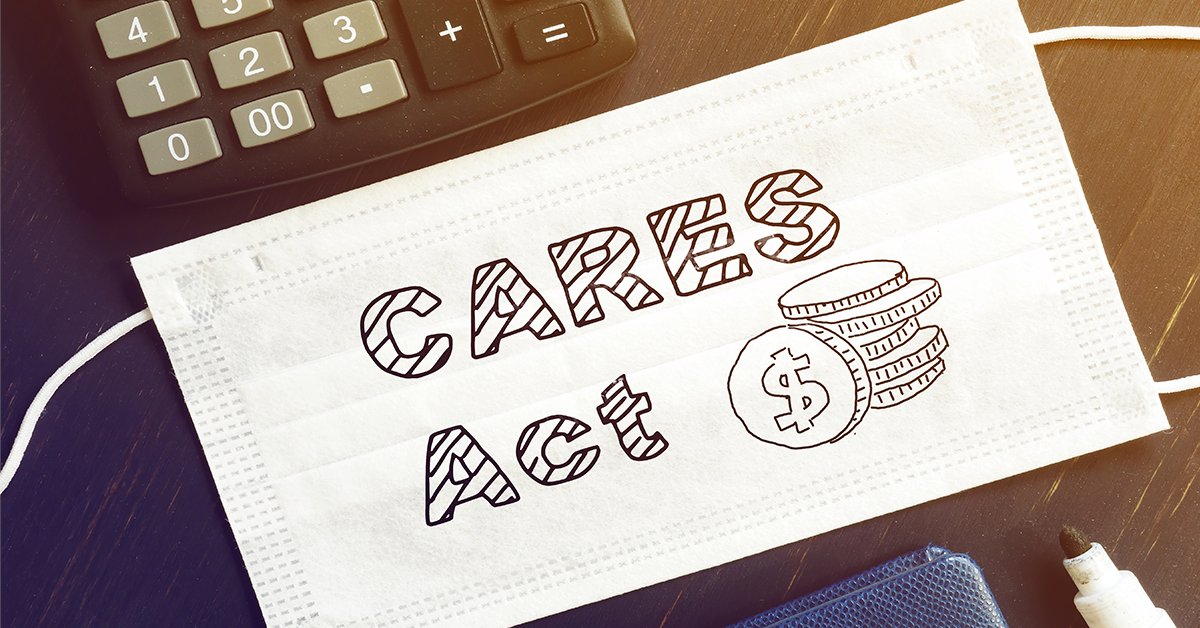 4 5
1 2 3 + =
0 00 .
CARES
Act
$